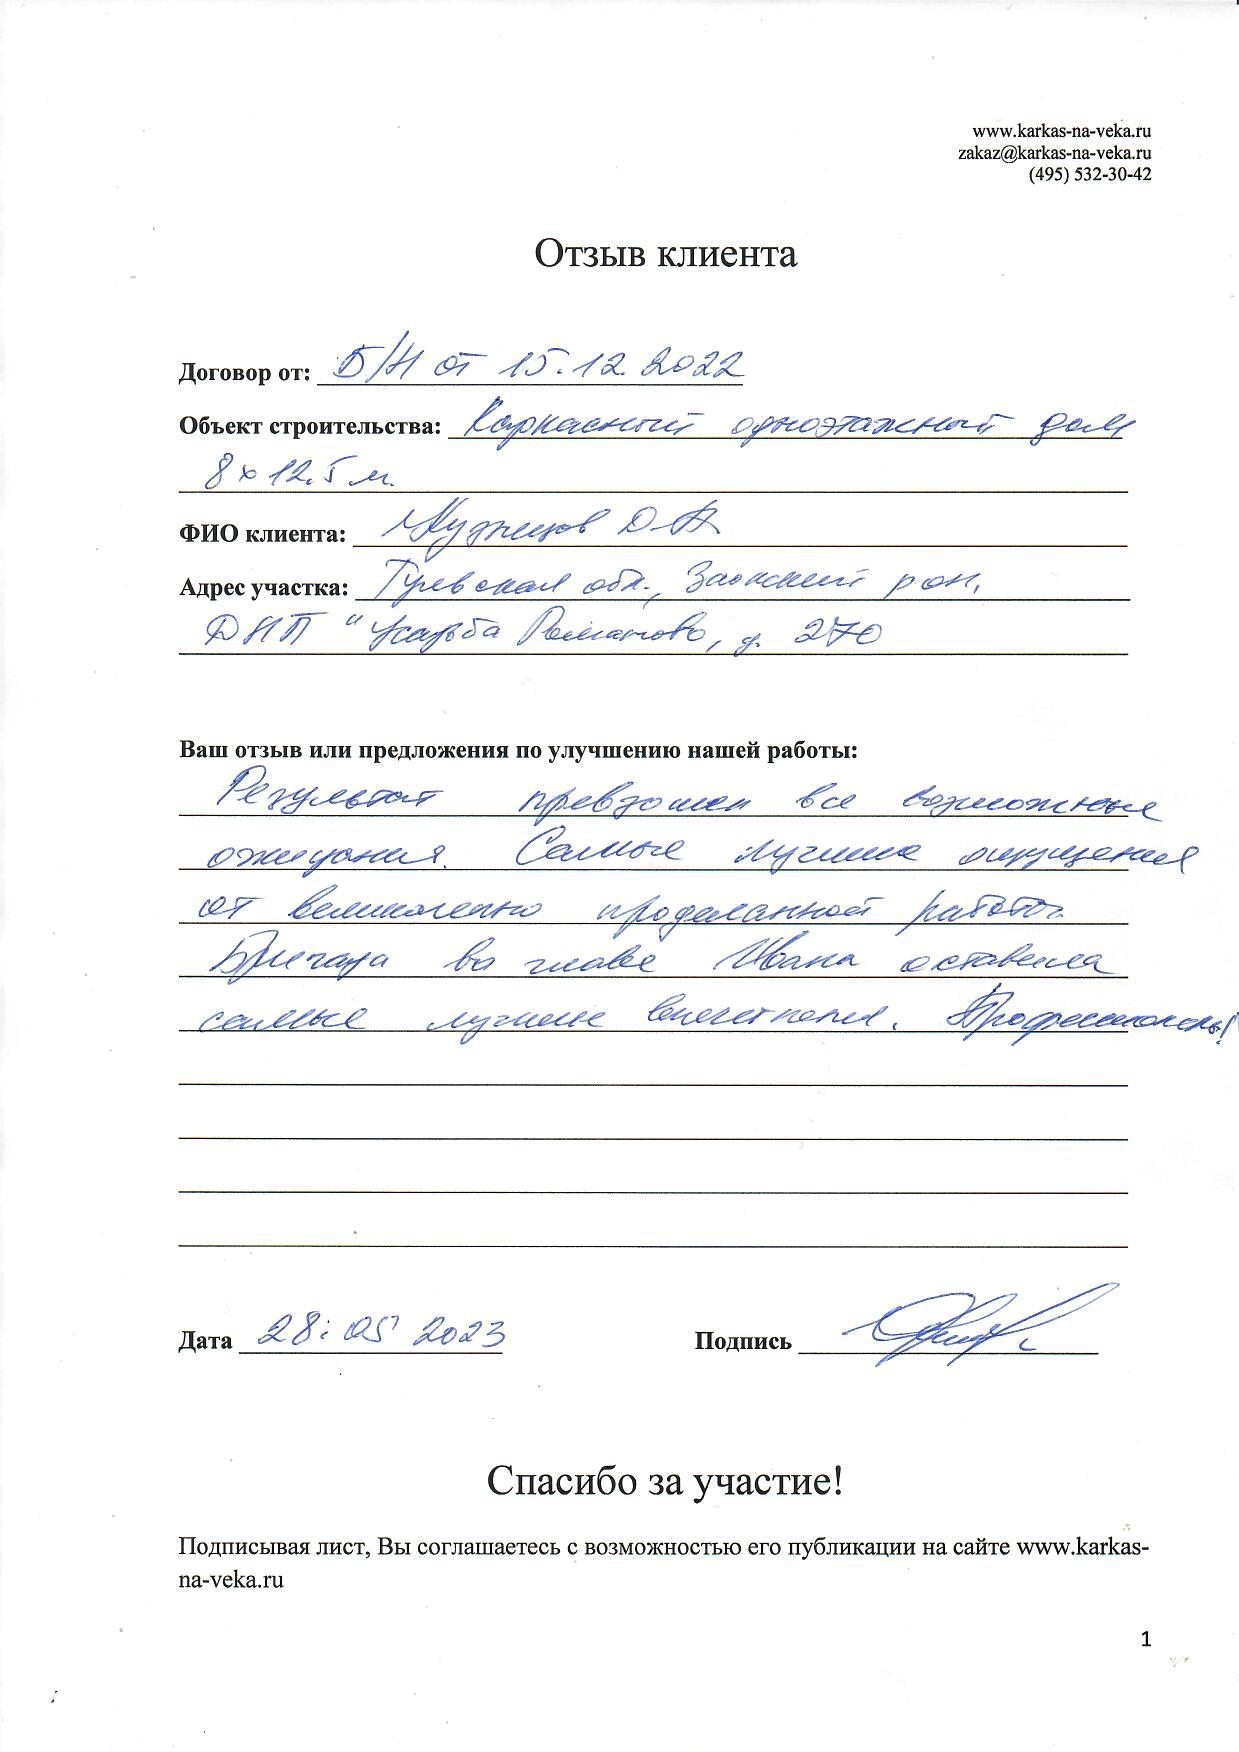 www.karkas-na-veka.ru
zakaz@karkas-na-veka.ru
(495) 532-30-42
Отзыв клиента
Договор от: Б/Н от 15.12.2022
Объект строительства: Каркасный одноэтажный дом
8х12.5 м.
ФИО клиента: Кузнецов
Адрес участка: Тульская обл., Заокский рон,
ДНП "Усадьба Романово, д. 270
Ваш отзыв или предложения по улучшению нашей работы:
Результат превзошел все возможные
ожидания. Самые лучшие ощущения
от великолепно проделанной работы.
Бригада во главе Ивана оставила
самые лучшие впечетления. Профессионалы!
Дата 28.05 2023 Подпись
Спасибо за участие!
Подписывая лист, Вы соглашаетесь с возможностью его публикации на сайте www.karkas-
na-veka.ru
1